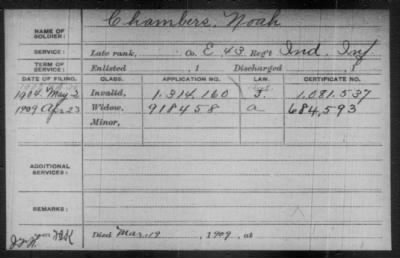 Chambers, Noah
NAME OF SOLDIER:
SERVICE: Late rank, Co. E. 43 Reg't Ind. Inf
TERM OF SERVICE: Enlisted , 1 Discharged , 1
DATE OF FILING. CLASS. APPLICATION NO. LAW. CERTIFICATE NO.
1904 May 2 Invalid, 1.314.160 1.081.537
1909 Apr 23 Widow, 918458 a 684,593
Minor,
ADDITIONAL SERVICES:
REMARKS:
Died Mar. 19 , 1909, at